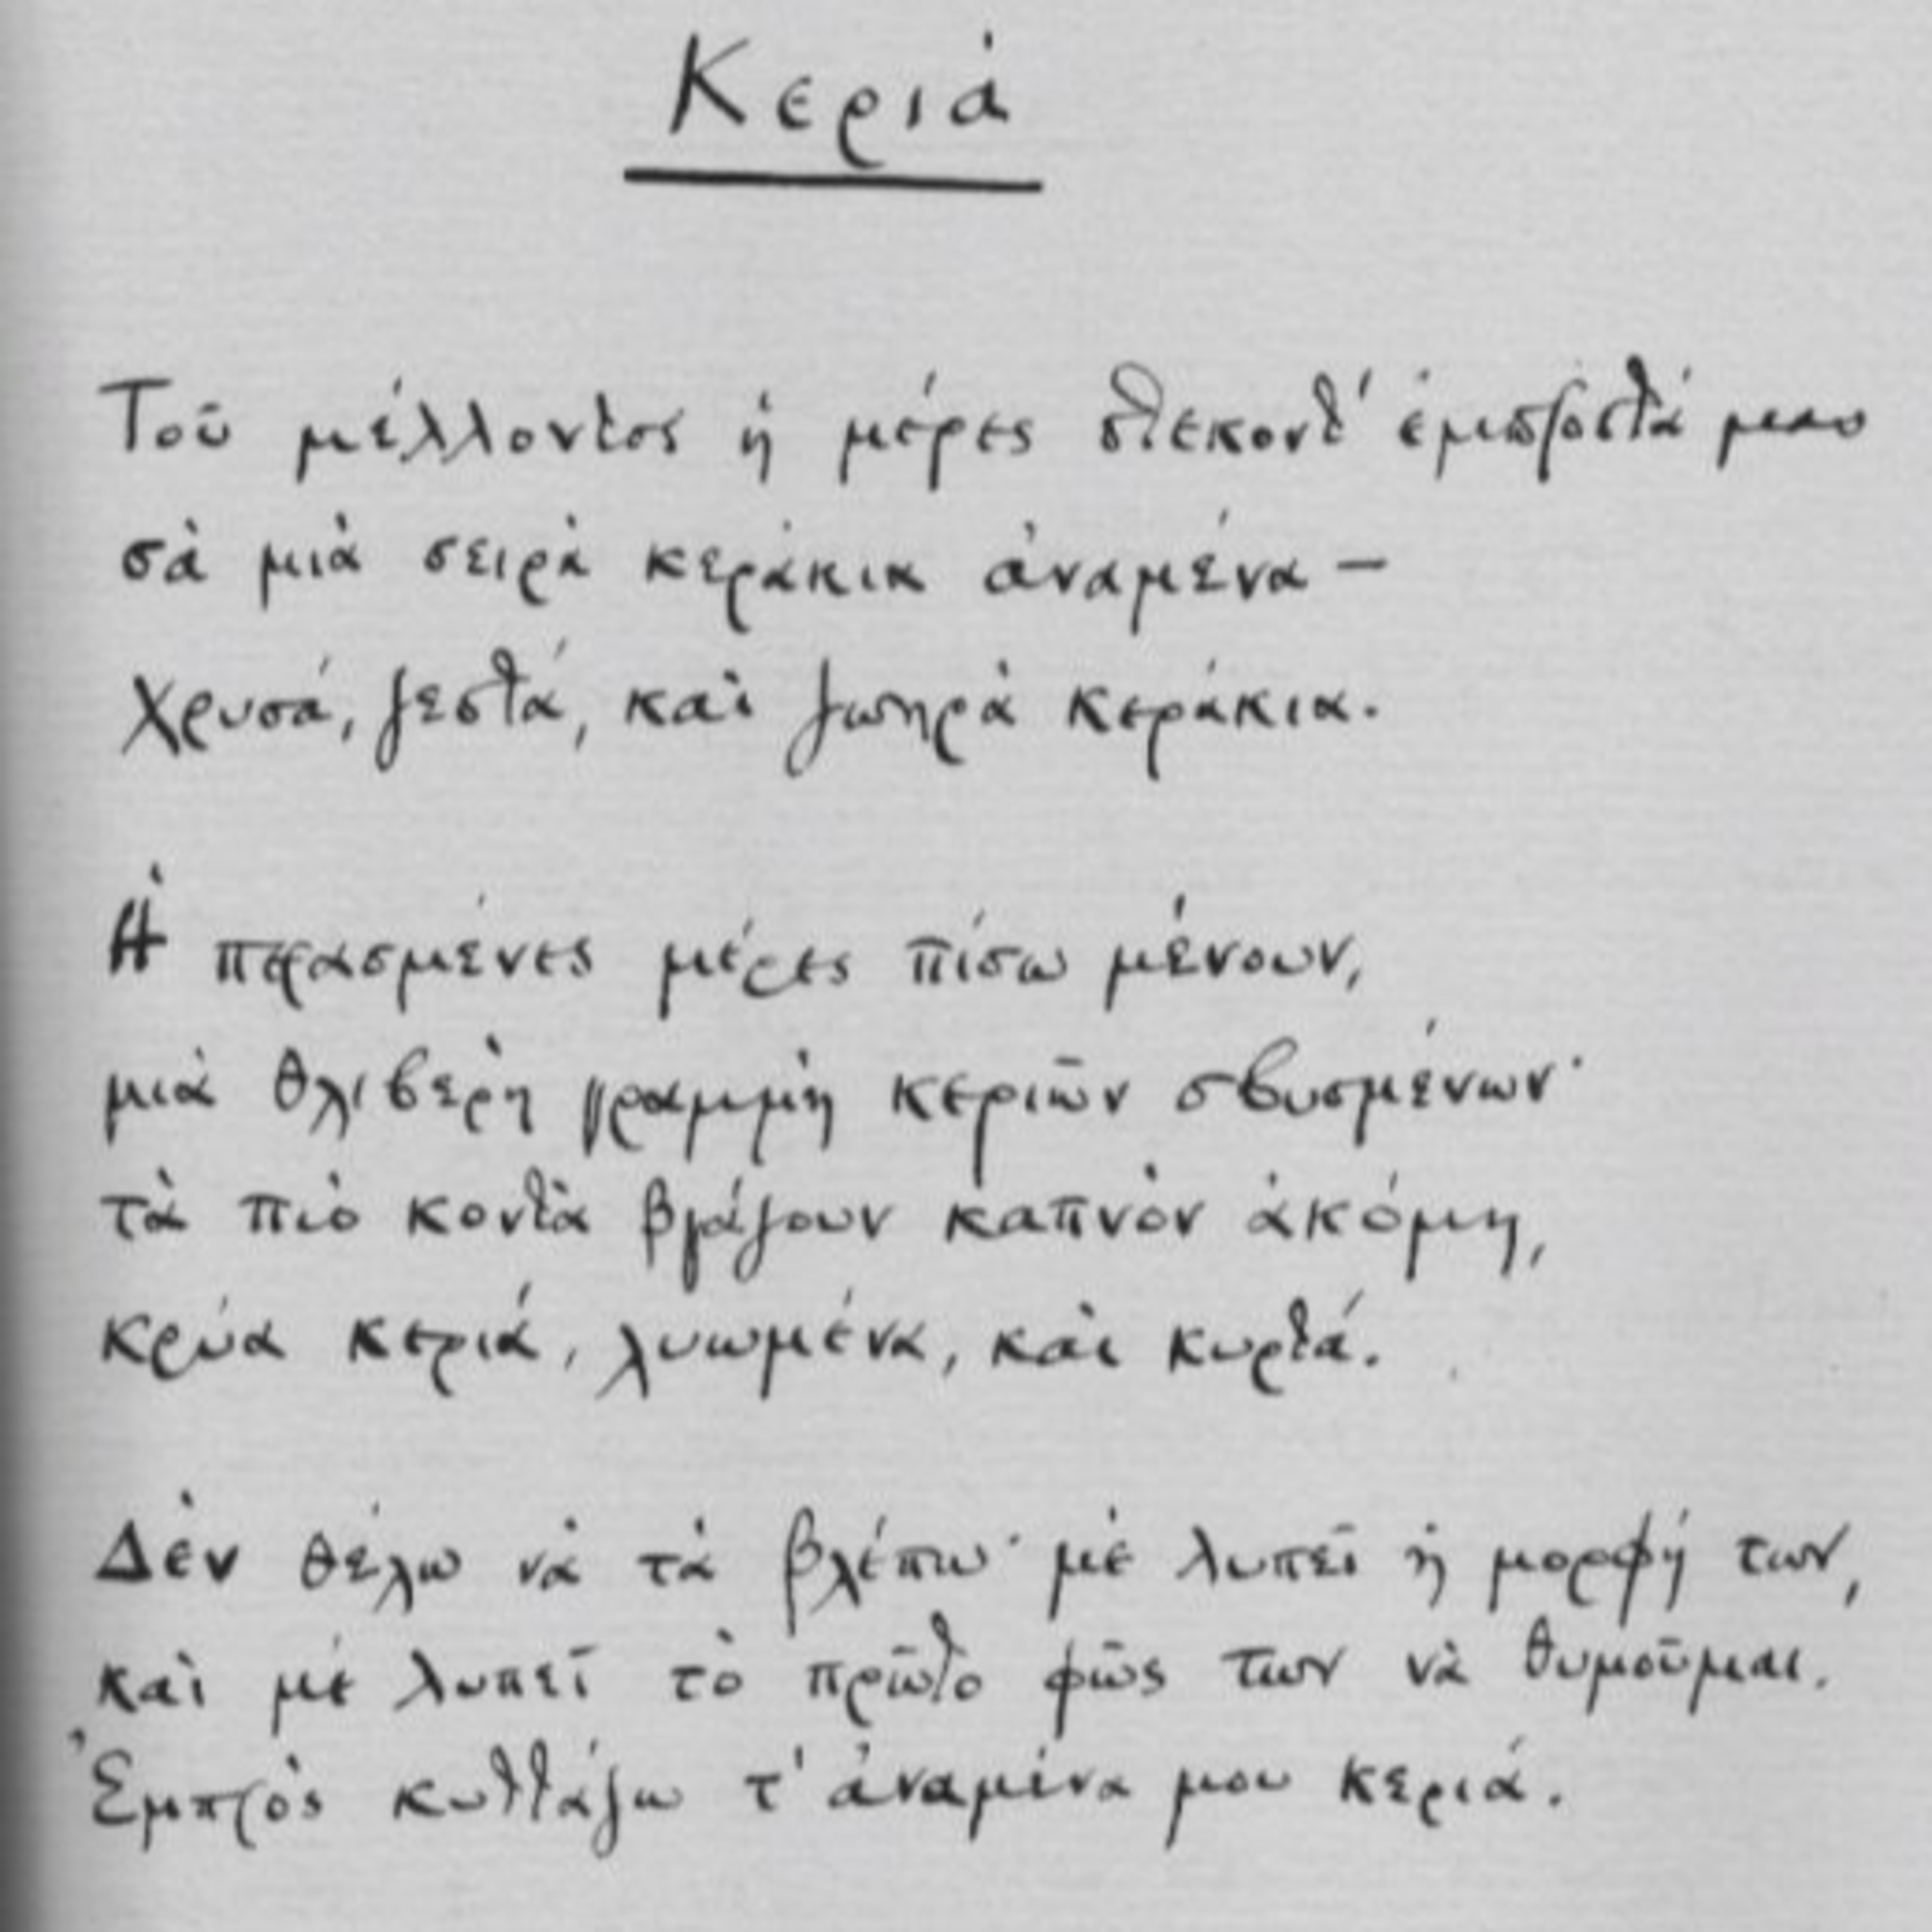 Κεριά
Τοῦ μέλλοντος ἡ μέρες στέκοντ' ἐμπροστά μας
σὰ μιὰ σειρὰ κεράκια ἀναμένα —
χρυσά, ζεστά, καὶ ζωηρὰ κεράκια.
Ἡ περασμένες μέρες πίσω μένουν,
μιὰ θλιβερὴ γραμμὴ κεριῶν σβυσμένων·
τὰ πιὸ κοντὰ βγάζουν καπνὸν ἀκόμη,
κρύα κεριά, λυωμένα, καὶ κυρτά.
Δὲν θέλω νὰ τὰ βλέπω· μὲ λυπεῖ ἡ μορφή των,
καὶ μὲ λυπεῖ τὸ πρῶτο φῶς των νὰ θυμοῦμαι.
Ἐμπρὸς κυττάζω τ' ἀναμένα μου κεριά.